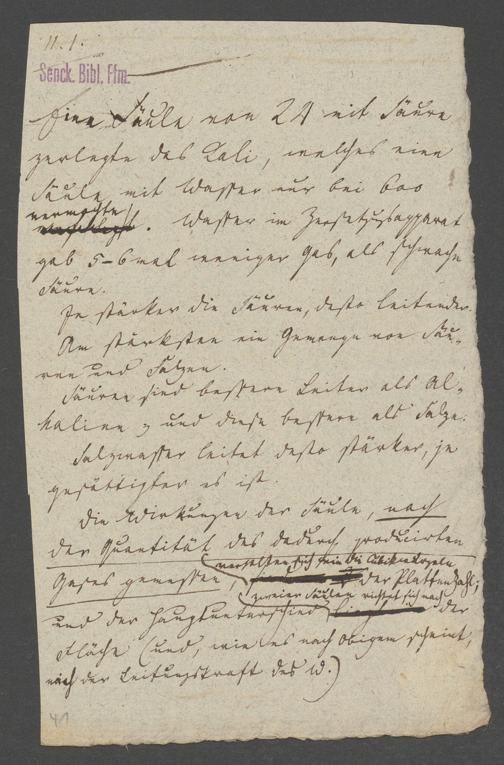 11. 1.
Senck. Bibl. Ffm.
Eine Säule von 24 mit Säure
zerlegte das Kali, welches eine
Säule mit Wasser nur bei 600
vermochte. Wasser im Zersetzugsapparat
gab 5-6 mal weniger Gas, als schwache
Säure.
Je stärker die Säuren, desto leitender.
Am stärksten ein Gemenge von Säu-
ren und Salzen.
Säuren sind bessere Leiter als Al-
kalien, und diese bessere als Salze.
Salzwasser leitet desto stärker, je
gesättigter es ist.
Die Wirkungen der Säule, nach
der Quantität des dadurch producirten
verhalten sich wie die Cubikwurzeln
Gases gemessen, der Plattenzahl;
zweier Säulen richtet sich nach
und der Hauptunterschied der
Fläche (und, wie es nach obigem scheint,
nach der Leitungskraft des W.)
41